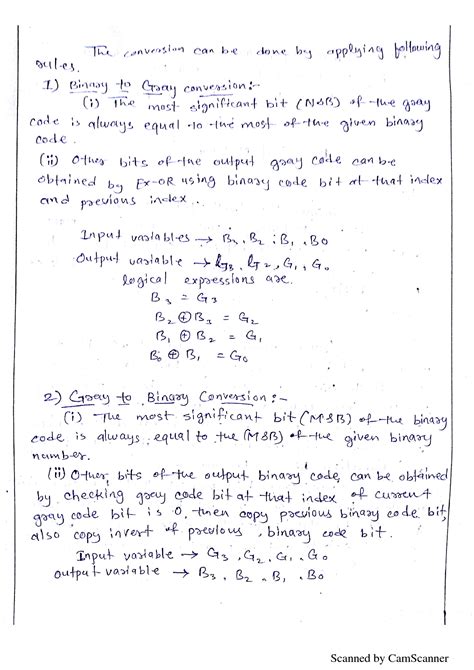 The conversion can be done by applying following
rules.
1) Binary to Gray conversion:-
(i) The most significant bit (MSB) of the gray
code is always equal to the most of the given binary
code.
(ii) Other bits of the output gray code can be
obtained by Ex-OR using binary code bit at that index
and previous index..
Input variables → B3, B2, B1, B0
Output variable → G3, G2, G1, G0
logical expressions are.
B3 = G3
B2 ⊕ B3 = G2
B1 ⊕ B2 = G1
B0 ⊕ B1 = G0
2) Gray to Binary Conversion:-
(i) The most significant bit (MSB) of the binary
code is always equal to the (MSB) of the given binary
number.
(ii) Other bits of the output binary code, can be obtained
by checking gray code bit at that index of current
gray code bit is 0, then copy previous binary code bit,
also copy invert of previous, binary code bit.
Input variable → G3, G2, G1, G0
Output variable → B3, B2, B1, B0
Scanned by CamScanner